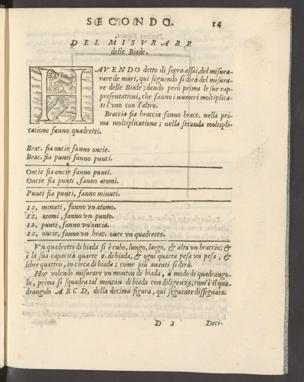 SECONDO. 14
DEL MISVRARE
delle Biade.
HAVENDO detto di sopra assai, del misura-
rare de muri, qui seguendo si dirà del misura-
re delle Biade; dando però prima le sue rap-
presentationi, che fanno i numeri moltiplica-
ti l'vno con l'altro.
Braccia sia braccia fanno bracc. nella pri-
ma moltiplicatione; nella seconda moltipli-
catione fanno quadretti.
Brac. sia oncie fanno oncie.
Brac. sia punti fanno punti.
Oncie sia oncie fanno punti.
Oncie sia punti, fanno atomi.
Punti sia punti, fanno minuti.
12, minuti, fanno vn atomo.
12, atomi, fanno vn punto.
12, punti, fanno vn'oncia.
12, oncie, fanno vn brac. ouer vn quadretto.
Vn quadretto di biada si è cubo, lungo, largo, & alto vn braccio; &
è la sua capacità quarte 6. di biada, & ogni quarta pesa vn peso, &
libre quattro, in circa di biada; come più auanti si dirà.
Hor volendo misurare vn monton di biada, à modo di quadrango-
lu, prima si squadra tal monton di biada con diligenza, com'è il qua-
drangolo A B C D, della decima figura, qui seguente dissegnata.
D 2 Deci-